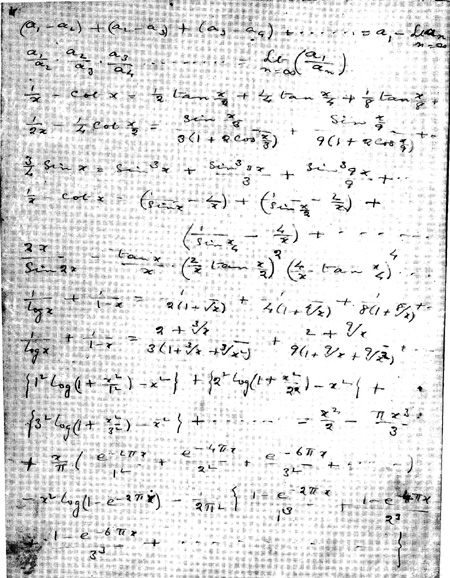 (a₁ - a₂) + (a₂ - a₃) + (a₃ - a₄) + ...... = a₁ - Lt aₙ n=∞
a₁/a₂ · a₂/a₃ · a₃/a₄ ........ = Lt n=∞ (a₁/aₙ)
1/x - cot x = 1/2 tan x/2 + 1/4 tan x/4 + 1/8 tan x/8 +
1/2x - 1/4 cot x/2 = sin x/3 / 3(1 + 2 cos x/3) + sin x/9 / 9(1 + 2 cos x/9) + ..
3/4 sin x = sin³x + sin³3x/3 + sin³9x/9 + ..
1/x - cot x = (1/sin x - 1/x) + (1/sin x/2 - 2/x) +
(1/sin x/4 - 4/x) + ....
2x/sin 2x = tan x/x · (2/x tan x/2)² (4/x tan x/4)⁴ ..
1/log x + 1/1-x = 1/2(1+√x) + 1/4(1+⁴√x) + 1/8(1+⁸√x) + ..
1/log x + 1/1-x = 2+³√x / 3(1+³√x+³√x²) + 2+⁹√x / 9(1+⁹√x+⁹√x²) + ..
{1² log(1 + x²/1²) - x²} + {2² log(1 + x²/2²) - x²} +
{3² log(1 + x²/3²) - x²} + ...... = x²/2 - πx³/3
+ x/π (e^-2πx/1² + e^-4πx/2² + e^-6πx/3² + ....)
- x² log(1 - e^-2πx) - 1/2π² {1 - e^-2πx/1³ + 1 - e^-4πx/2³
+ 1 - e^-6πx/3³ + ...... }